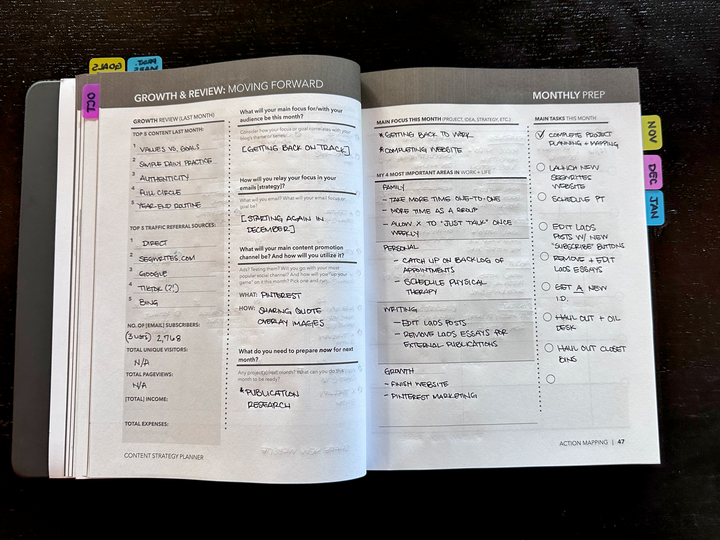 GOALS
OCT
GROWTH & REVIEW: MOVING FORWARD
GROWTH REVIEW (LAST MONTH)
TOP 5 CONTENT LAST MONTH:
1 VALUES VS. GOALS
2 SIMPLE DAILY PRACTICE
3 AUTHENTICITY
4 FULL CIRCLE
5 YEAR-END ROUTINE
TOP 5 TRAFFIC REFERRAL SOURCES:
1 DIRECT
2 SEGWRITES.COM
3 GOOGLE
4 TIKTOK (?!)
5 BING
NO. OF (EMAIL) SUBSCRIBERS:
(SUBS) 2,768
TOTAL UNIQUE VISITORS:
N/A
TOTAL PAGEVIEWS:
N/A
(TOTAL) INCOME:
TOTAL EXPENSES:
CONTENT STRATEGY PLANNER
What will your main focus for/with your
audience be this month?
Consider how your focus or goal correlates with your
[GETTING BACK ON TRACK]
How will you relay your focus in your
emails [strategy]?
What will you email? What will your email focus or
goal be?
[STARTING AGAIN IN
DECEMBER]
What will your main content promotion
channel be? And how will you utilize it?
WHAT: PINTEREST
HOW: SHARING QUOTE
OVERLAY IMAGES
What do you need to prepare now for next
month?
month to be ready?
* PUBLICATION
RESEARCH
MONTHLY PREP
MAIN FOCUS THIS MONTH (PROJECT, IDEA, STRATEGY, ETC.)
* GETTING BACK TO WORK
* COMPLETING WEBSITE
MY 4 MOST IMPORTANT AREAS IN WORK + LIFE
FAMILY
- TAKE MORE TIME ONE-TO-ONE
- MORE TIME AS A GROUP
- ALLOW X TO "JUST TALK" ONCE
WEEKLY
PERSONAL
- CATCH UP ON BACKLOG OF
APPOINTMENTS
- SCHEDULE PHYSICAL
THERAPY
WRITING
- EDIT LADS POSTS
- REMOVE LADS ESSAYS FOR
EXTERNAL PUBLICATIONS
GROWTH
- FINISH WEBSITE
- PINTEREST MARKETING
MAIN TASKS THIS MONTH
COMPLETE PROJECT
PLANNING + MAPPING
LAUNCH NEW
SEGWRITES
WEBSITE
SCHEDULE PT
EDIT LADS
POSTS W/ NEW
"SUBSCRIBE" BUTTONS
REMOVE + EDIT
LADS ESSAYS
GET A NEW
I.D.
HAUL OUT + OIL
DESK
HAUL OUT CLOSET
BINS
ACTION MAPPING | 47
NOV
DEC
JAN